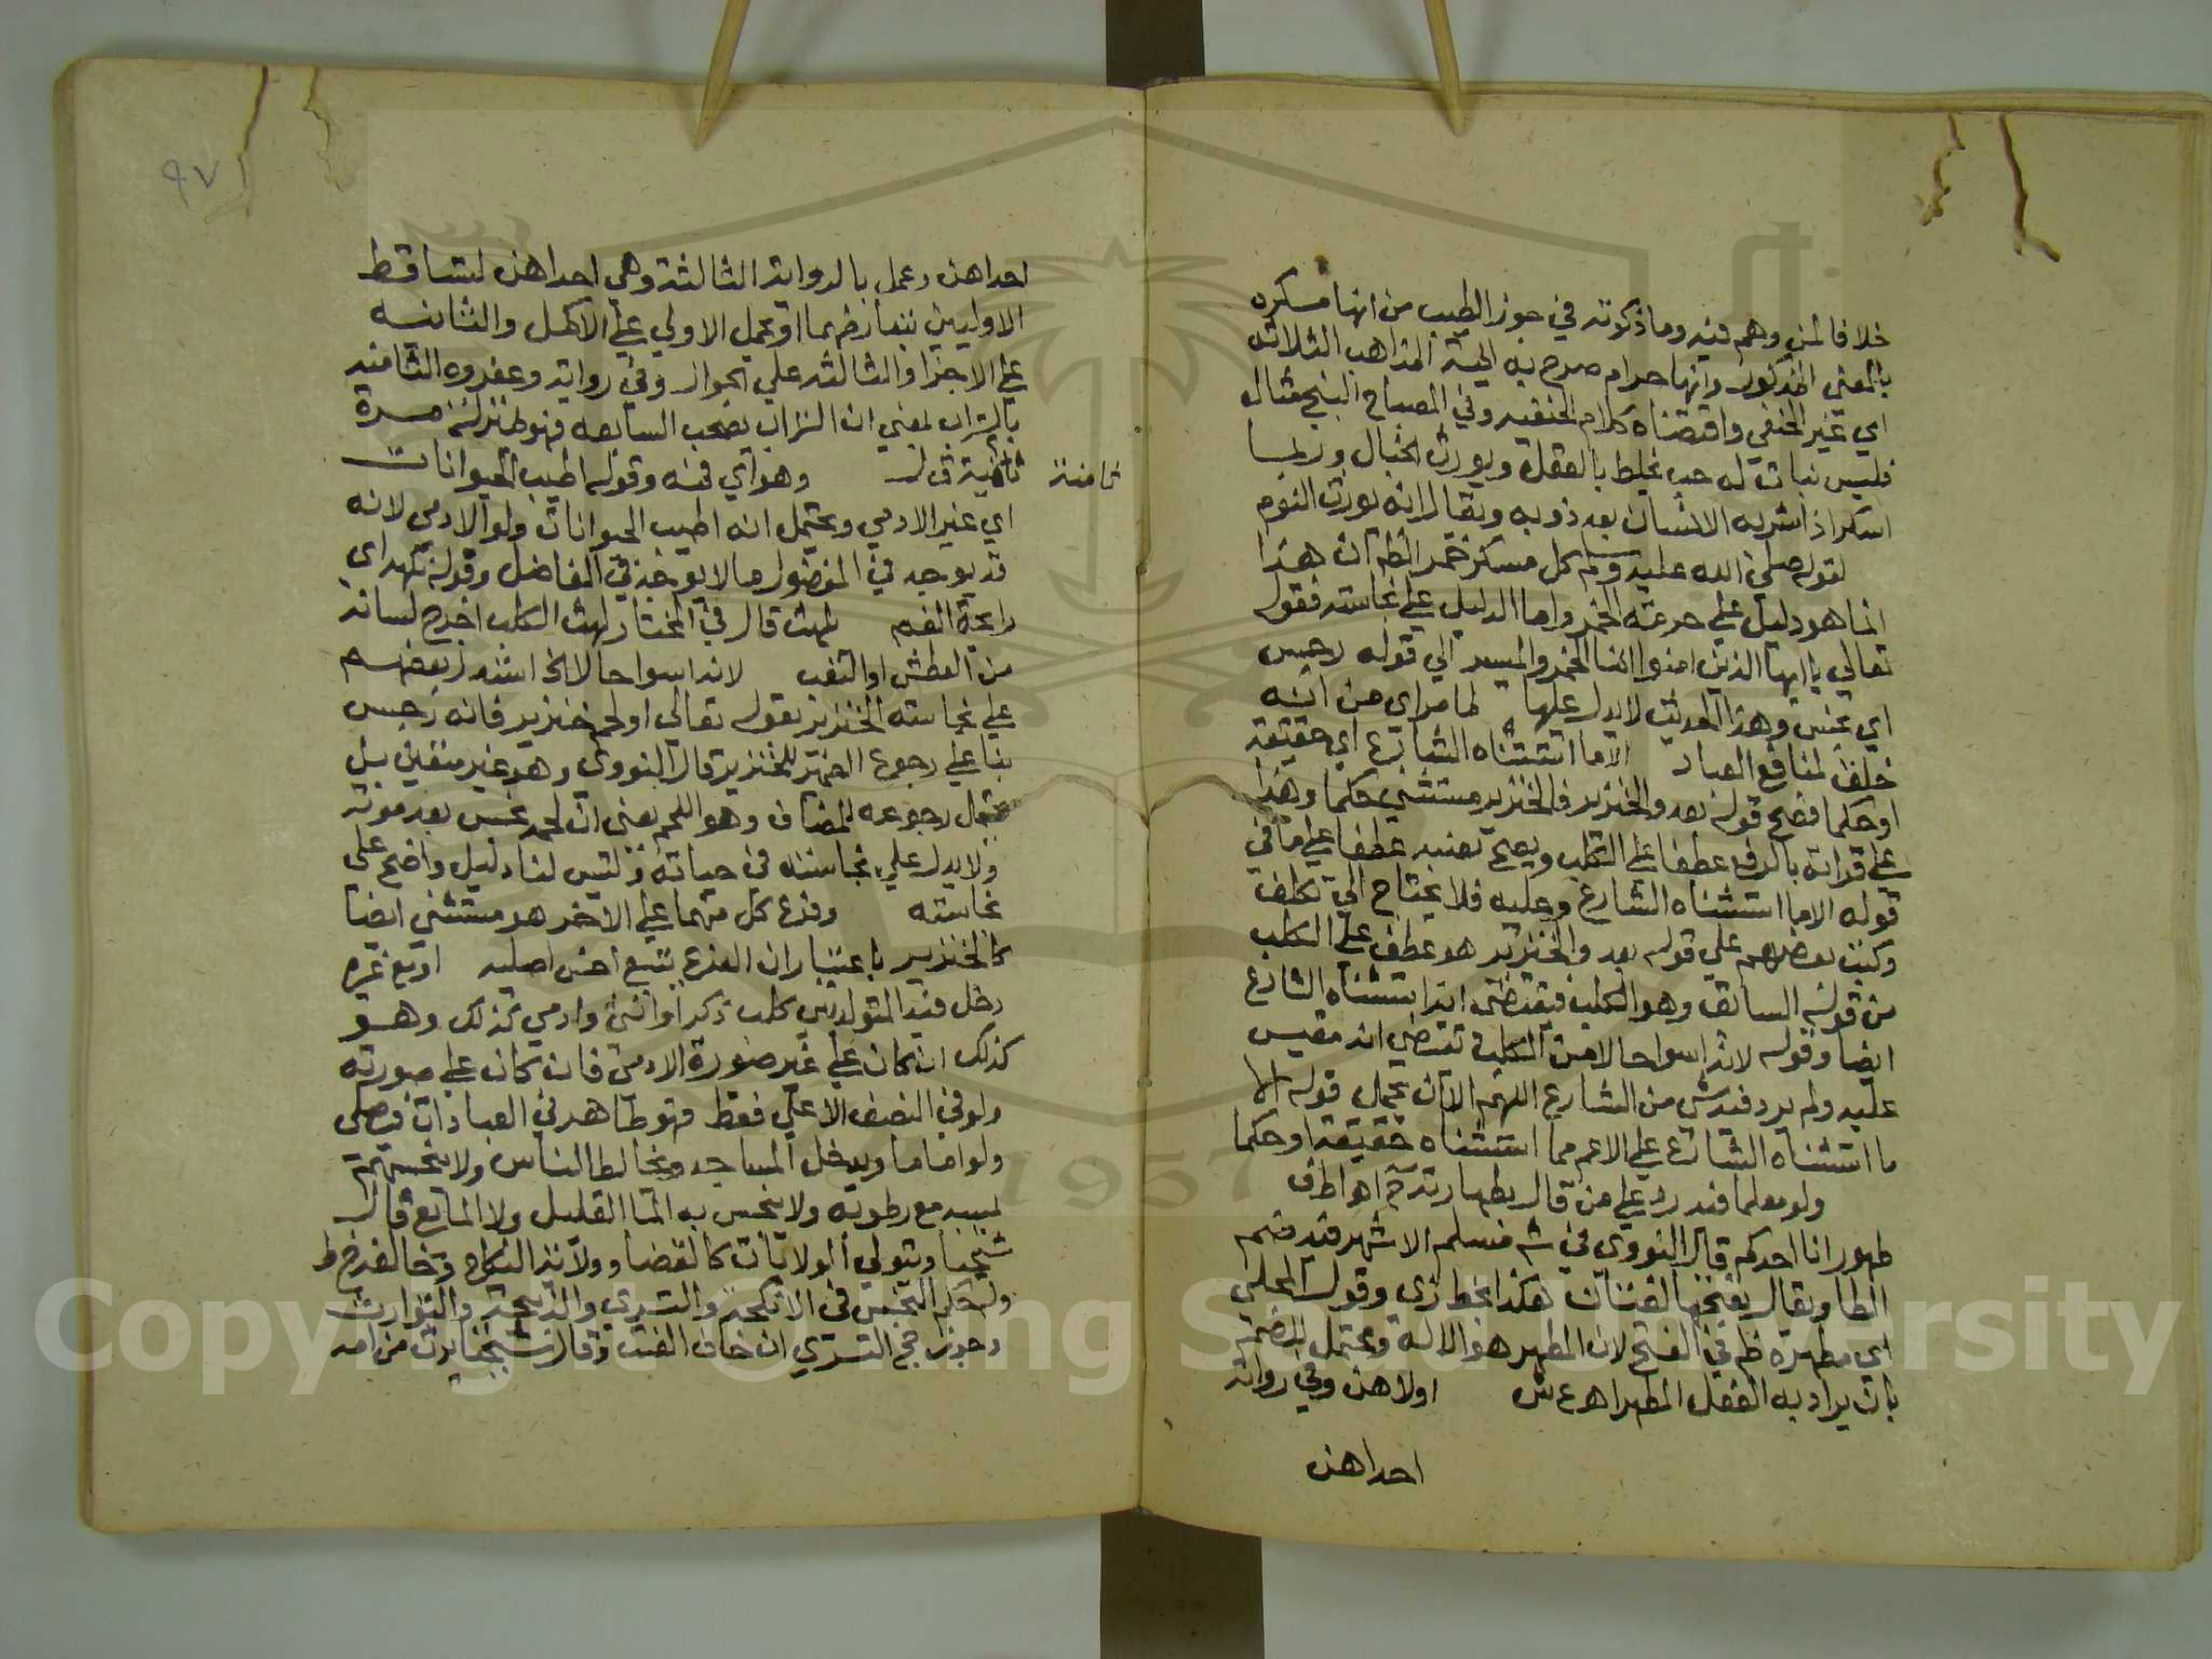 خلافا لمن وهم فيه وما ذكرته في جوز الطيب من انها مسكره
بالمعني المذكور وانها حرام صرح به ايمة المذاهب الثلاثه
اي غير الحنفي واقتضاه كلام الحنفيه وفي المصباح البنج مثال
فليس نبات له حب يخلط بالعقل ويورث الخبال وربما
اسكر اذا شربه الانسان بعد ذوبه ويقال انه يورث النوم
لقوله صلي الله عليه وسلم كل مسكر خمر الظ ان هذا
انما هو دليل علي حرمته الخمر واما الدليل علي نجاسته فقوله
تعالي يا ايها الذين امنوا انما الخمر والميسر الي قوله رجس
اي نجس وهذا الحديث لا يدل عليها لما مر اي من انه
خلق لمنافع العباد الا ما استثناه الشارع اي حقيقة
او حكما فصح قوله بعد والخنزير فالخنزير مستثني حكما وهذا
علي قراته بالرفع عطفا علي الكلب ويصح نصبه عطفا علي ما في
قوله الا ما استثناه الشارع وعليه فلا يحتاج الي تكلف
وكتب بعضهم علي قوله بعد والخنزير هو عطف علي الكلب
من قوله السابق وهو الكلب فيقتضي انه استثناه الشارع
ايضا وقوله لانه اسوا حالا من الكلب تقتضي انه مقيس
عليه ولم يرد فيه شي من الشارع اللهم الا ان يحمل قوله الا
ما استثناه الشارع علي الاعم مما استثناه حقيقة او حكما
ولو معلما فيه رد علي من قال بطهارته اهـ اطف
طهور انا احدكم قال النووي في شر مسلم الاشهر فيه ضم
الطا ويقال بفتحها لغتان هكذا بخط زي وقول المحلي
اي مطهرة ظ في الفتح لان المطهر هو الاله ويحتمل الضم
بان يراد به الفعل المطهر اهـ ع ش اولاهن وفي رواية
احداهن
٩٧
احداهن وعمل بالرواية الثالثة وهي احداهن لتساقط
الاوليين بتعارضهما او تحمل الاولي علي الاكمل والثانيه
علي الاجزا والثالثه علي الجواز وفي رواية وعفروه الثامنه
بالتراب بمعني ان التراب يصحب السابعه فهو بمنزلة مرة
ثامنة وهو اي فنه وقوله اطيب الحيوانات
ثامنة
اي غير الادمي ويحتمل انه اطيب الحيوانات ولو الادمي لانه
قد يوجد في المفضول ما لا يوجد في الفاضل وقوله نكهة اي
رايحة الفم يلهث قال في المختار لهث الكلب اخرج لسانه
من العطش او التعب لانه اسوا حالا الخ استدل بعضهم
علي نجاسته الخنزير بقوله تعالي او لحم خنزير فانه رجس
بنا علي رجوع الضمير للخنزير قال النووي وهو غير متعين بل
يحتمل رجوعه للمضاف وهو اللحم يعني ان لحمه نجس بعد موته
ولا يدل علي نجاسته في حياته وليس لنا دليل واضح علي
نجاسته وفرع كل منهما علي الاخر هو مستثني ايضا
كالخنزير باعتبار ان الفرع يتبع اخس اصليه او مع غيره
دخل فيه المتولد بين كلب ذكرا او انثي وادمي كذلك وهو
كذلك ان كان علي غير صورة الادمي فان كان علي صورته
ولو في النصف الاعلي فقط فهو طاهر في العبادات فيصلي
ولو اماما ويدخل المساجد ويخالط الناس ولا ينجسهم
بمسه مع رطوبه ولا ينجس به الما القليل ولا المايع قال
شيخنا ويتولي الولايات كالقضا وولاية النكاح وخالفه خ ط
وله حكم النجس في الانكحة والتسري والذبيحة والتوارث
وجوز حج التسري ان خاف العنت وقال شيخنا يرث من امه